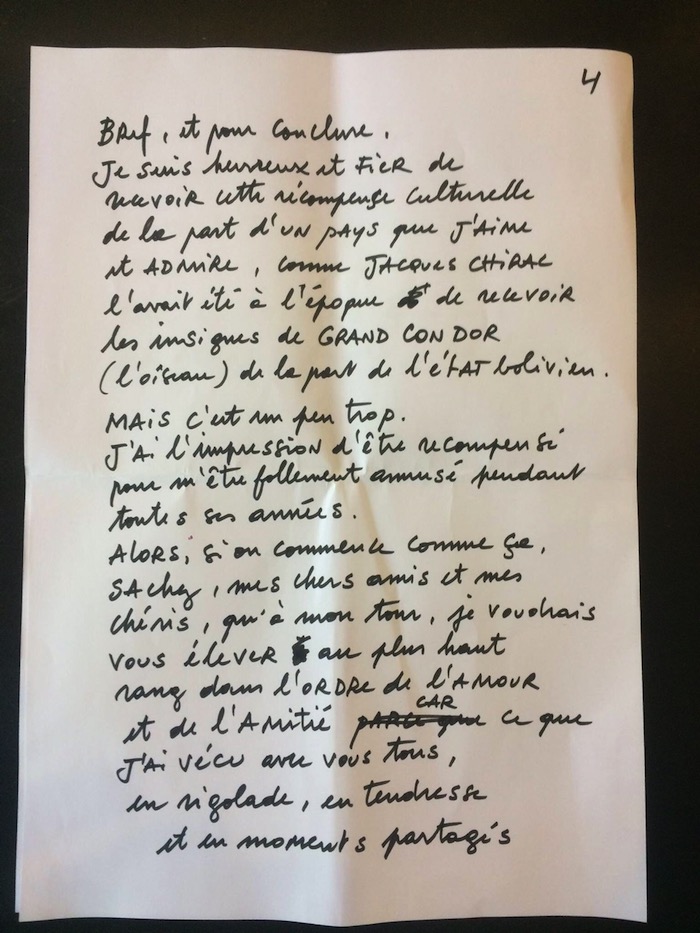 4
Bref, et pour conclure,
Je suis heureux et FIER de
recevoir cette récompense culturelle
de la part d'UN PAYS que J'AIME
et ADMIRE, comme JACQUES CHIRAC
l'avait été à l'époque de recevoir
les insignes de GRAND CONDOR
(l'oiseau) de la part de l'état bolivien.
MAIS c'est un peu trop.
J'AI l'impression d'être recompensé
pour m'être follement amusé pendant
toutes ses années.
Alors, si on commence comme ça,
SAchez, mes chers amis et mes
chéris, qu'à mon tour, je voudrais
vous élever au plus haut
rang dans l'ORDRE de l'AMOUR
et de l'AMitié parce que CAR ce que
J'Ai vécu avec vous tous,
en rigolade, en tendresse
et en moments partagés